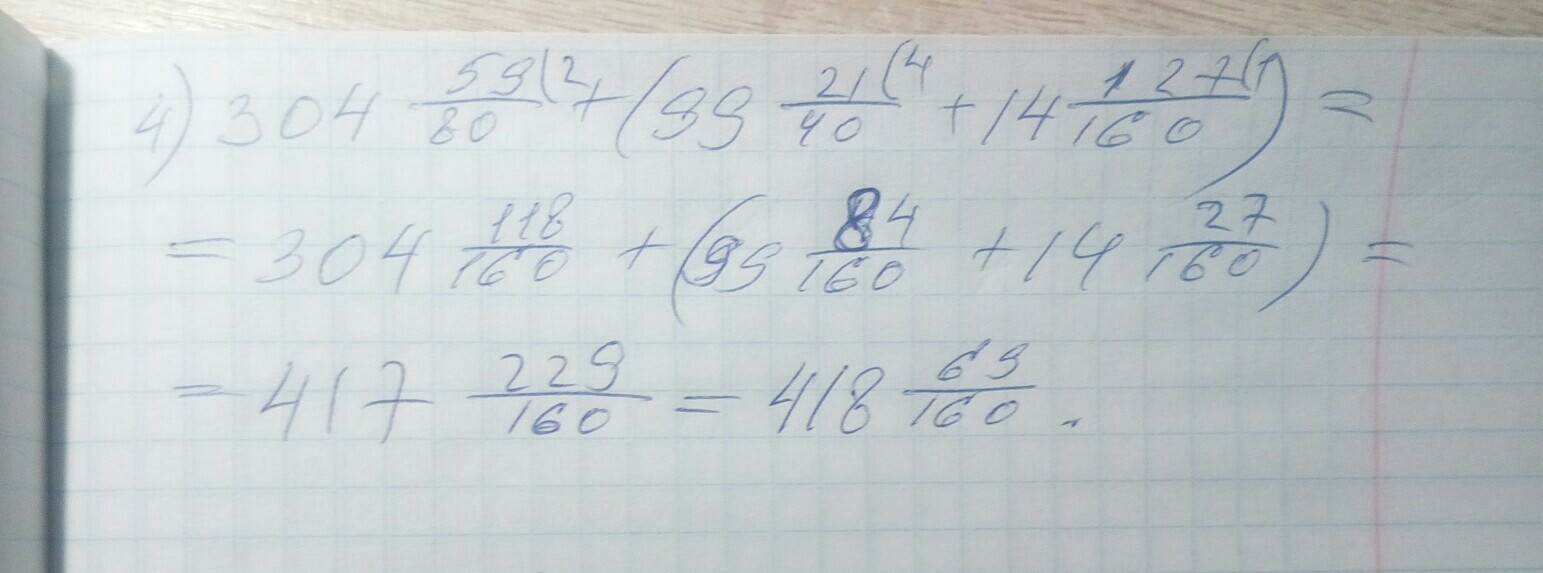 4) 304 59/80 (2 + (99 21/40 (4 + 14 127/160 (1) =
= 304 118/160 + (99 84/160 + 14 27/160) =
= 417 229/160 = 418 69/160.